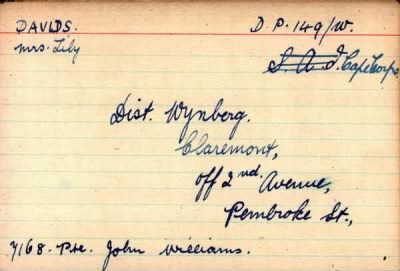 DAVIDS. D.P. 149/W.
Mrs. Lily
S. A. I. Cape Corps.
Dist. Wynberg.
Claremont,
off 2nd. Avenue,
Pembroke St.,
7168. Pte. John Williams.